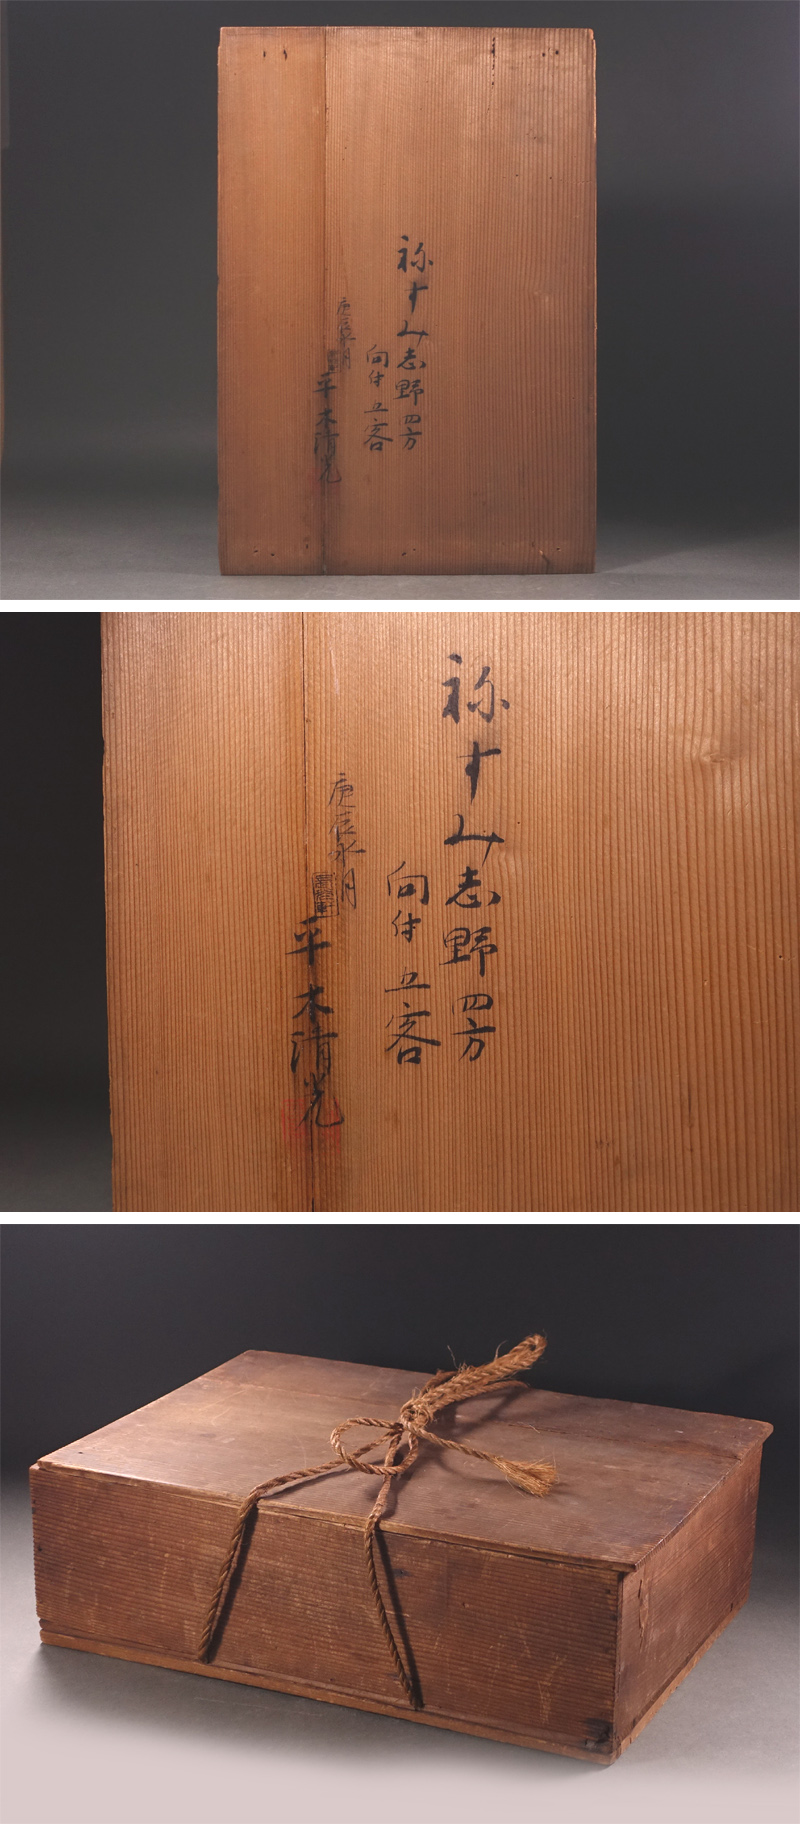 祢すみ志野四方
向付五客
庚辰氷月
平木清光
祢すみ志野四方
向付五客
庚辰氷月
平木清光